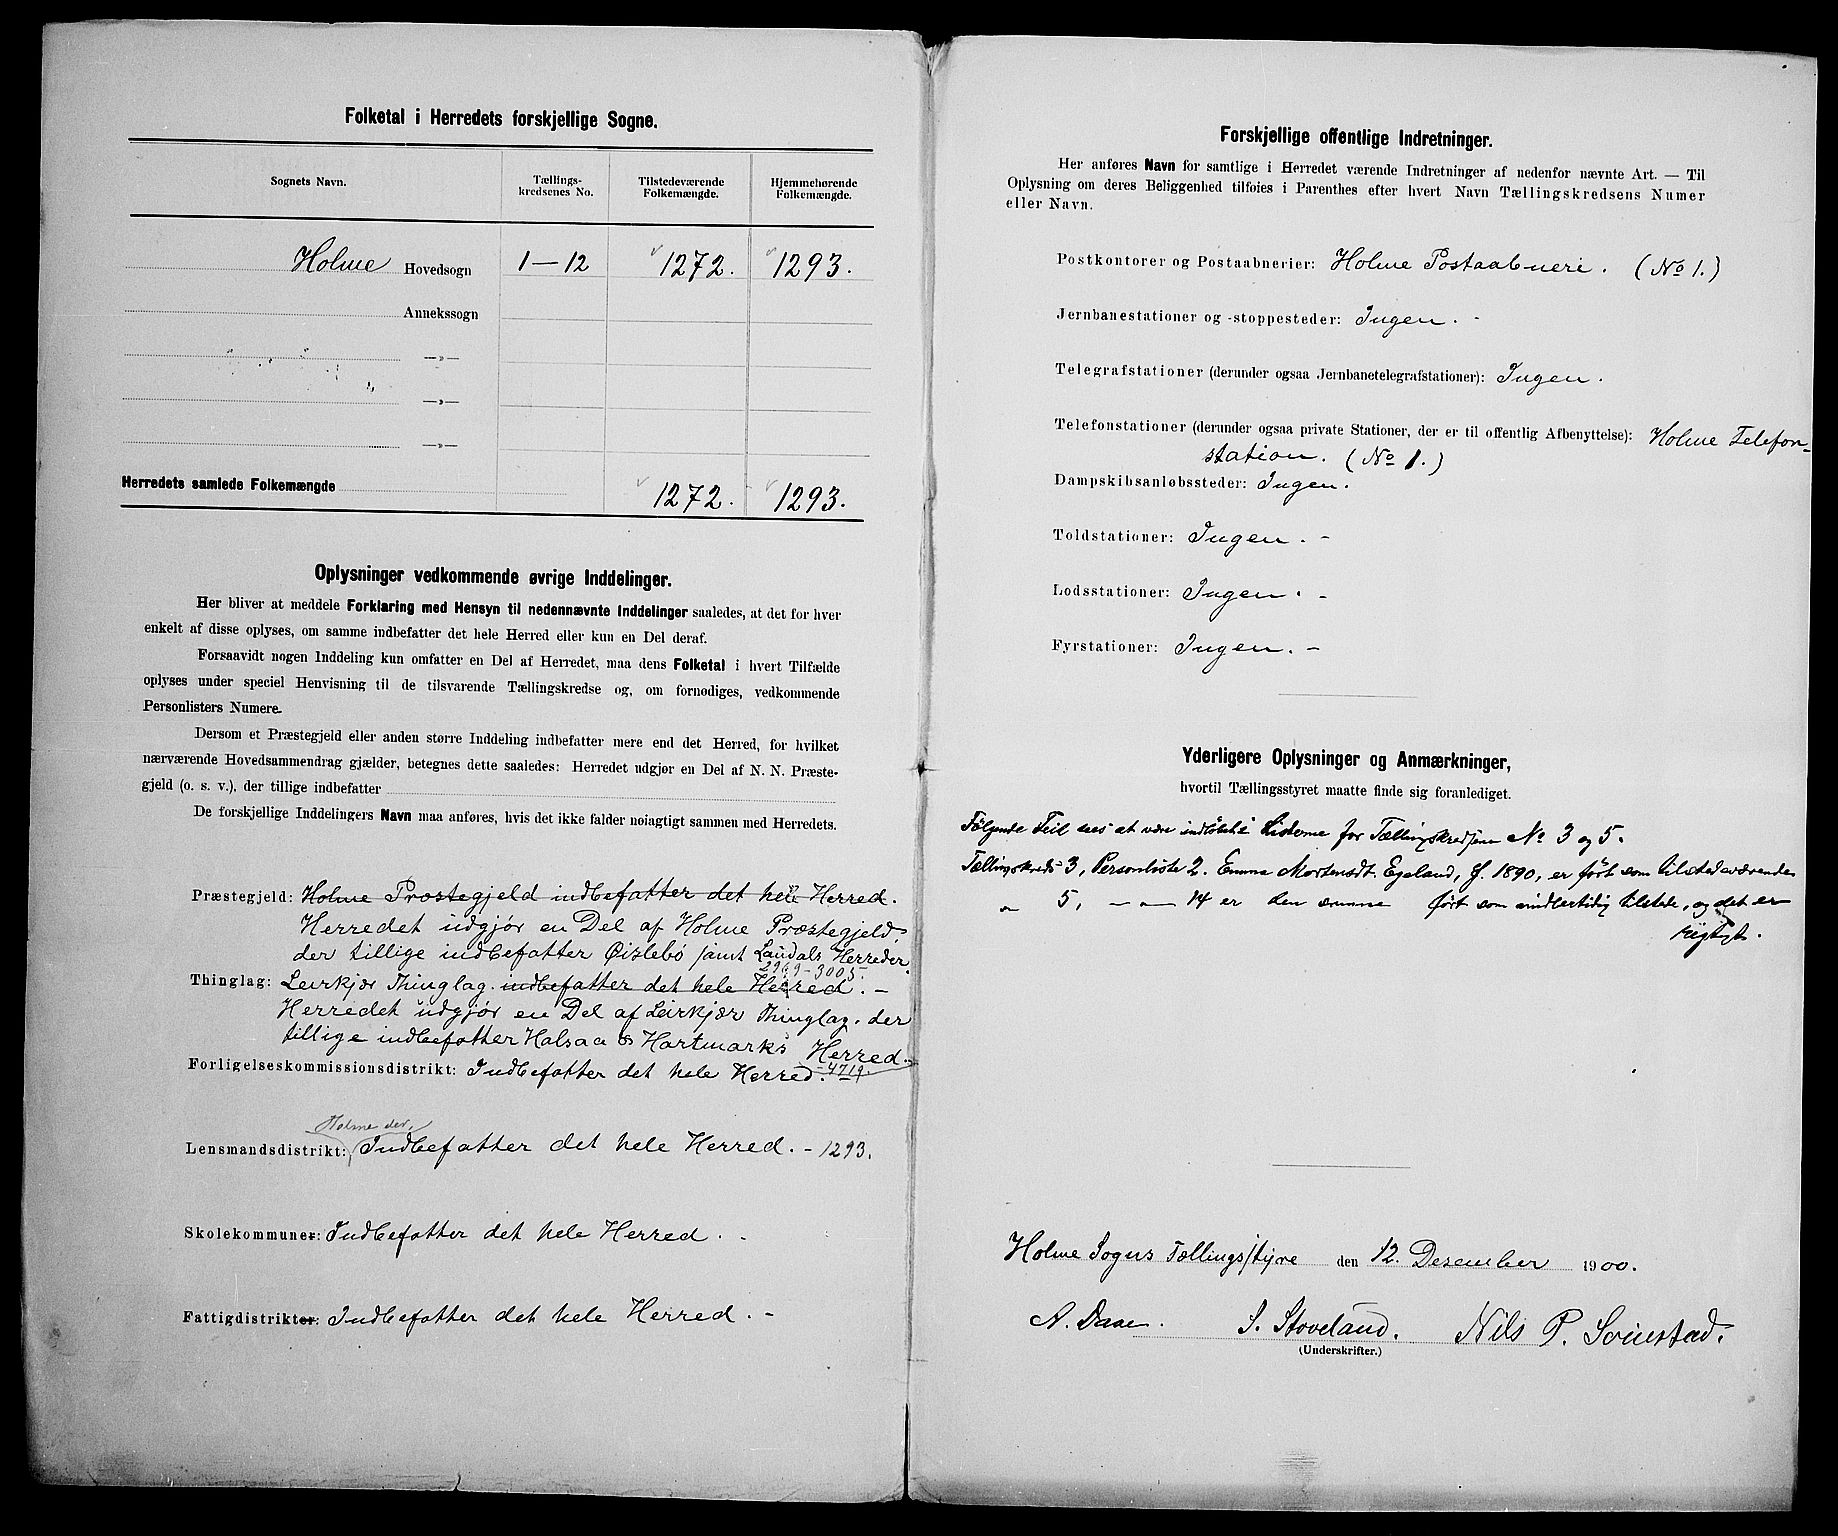 Folketal i Herredets forskjellige Sogne.
Sognets Navn.
Tællings-
kredsenes No.
Tilstedeværende
Folkemængde.
Hjemmehørende
Folkemængde.
Holme Hovedsogn 1—12 1272. 1293.
Annekssogn
—»—
—»—
—»—
Herredets samlede Folkemængde 1272. 1293.
Oplysninger vedkommende øvrige Inddelinger.
Her bliver at meddele Forklaring med Hensyn til nedennævnte Inddelinger saaledes, at det for hver
enkelt af disse oplyses, om samme indbefatter det hele Herred eller kun en Del deraf.
Forsaavidt nogen Inddeling kun omfatter en Del af Herredet, maa dens Folketal i hvert Tilfælde
oplyses under speciel Henvisning til de tilsvarende Tællingskredse og, om fornødiges, vedkommende
Personlisters Numere.
Dersom et Præstegjeld eller anden større Inddeling indbefatter mere end det Herred, for hvilket
nærværende Hovedsammendrag gjælder, betegnes dette saaledes: Herredet udgjør en Del af N. N. Præste-
gjeld (o. s. v.), der tillige indbefatter
De forskjellige Inddelingers Navn maa anføres, hvis det ikke falder nøiagtigt sammen med Herredets.
Præstegjeld: Holme Præstegjeld indbefatter det hele Herred.
Herredet udgjør en Del af Holme Præstegjeld,
der tillige indbefatter Øislebø samt Laudals Herreder.
2969-3005.
Thinglag: Leirkjær Thinglag. indbefatter det hele Herred. —
Herredet udgjør en Del af Leirkjær Thinglag. der
tillige indbefatter Halsaa & Hartmarks Herred.
Forligelseskommissionsdistrikt: Indbefatter det hele Herred. -4719.
Holme der,
Lensmandsdistrikt: Indbefatter det hele Herred. - 1293.
Skolekommuner: Indbefatter det hele Herred. -
Fattigdistrikter: Indbefatter det hele Herred. -
Forskjellige offentlige Indretninger.
Her anføres Navn for samtlige i Herredet værende Indretninger af nedenfor nævnte Art. — Til
Oplysning om deres Beliggenhed tilføies i Parenthes efter hvert Navn Tællingskredsens Numer
eller Navn.
Postkontorer og Postaabnerier: Holme Postaabneri. (No 1.)
Jernbanestationer og -stoppesteder: Ingen. -
Telegrafstationer (derunder ogsaa Jernbanetelegrafstationer): Ingen.
Telefonstationer (derunder ogsaa private Stationer, der er til offentlig Afbenyttelse): Holme Telefon-
station. (No 1.)
Dampskibsanløbssteder: Ingen.
Toldstationer: Ingen. -
Lodsstationer: Ingen. -
Fyrstationer: Ingen. -
Yderligere Oplysninger og Anmærkninger,
hvortil Tællingsstyret maatte finde sig foranlediget.
Følgende Feil sees at være indløbet i Listerne for Tællingskredsene No 3 og 5.
Tællingskreds 3, Personliste 2. Emma Mortensdt. Egeland, f. 1890, er ført som tilstedeværende
„ 5, — „ — 14 er den samme ført som midlertidig tilstede, og det er
rigtigt.
Holme Sogns Tællingsstyre den 12. Desember 1900.
A. Daae. S. Stoveland. Nils P. Soiustad.
(Underskrifter.)